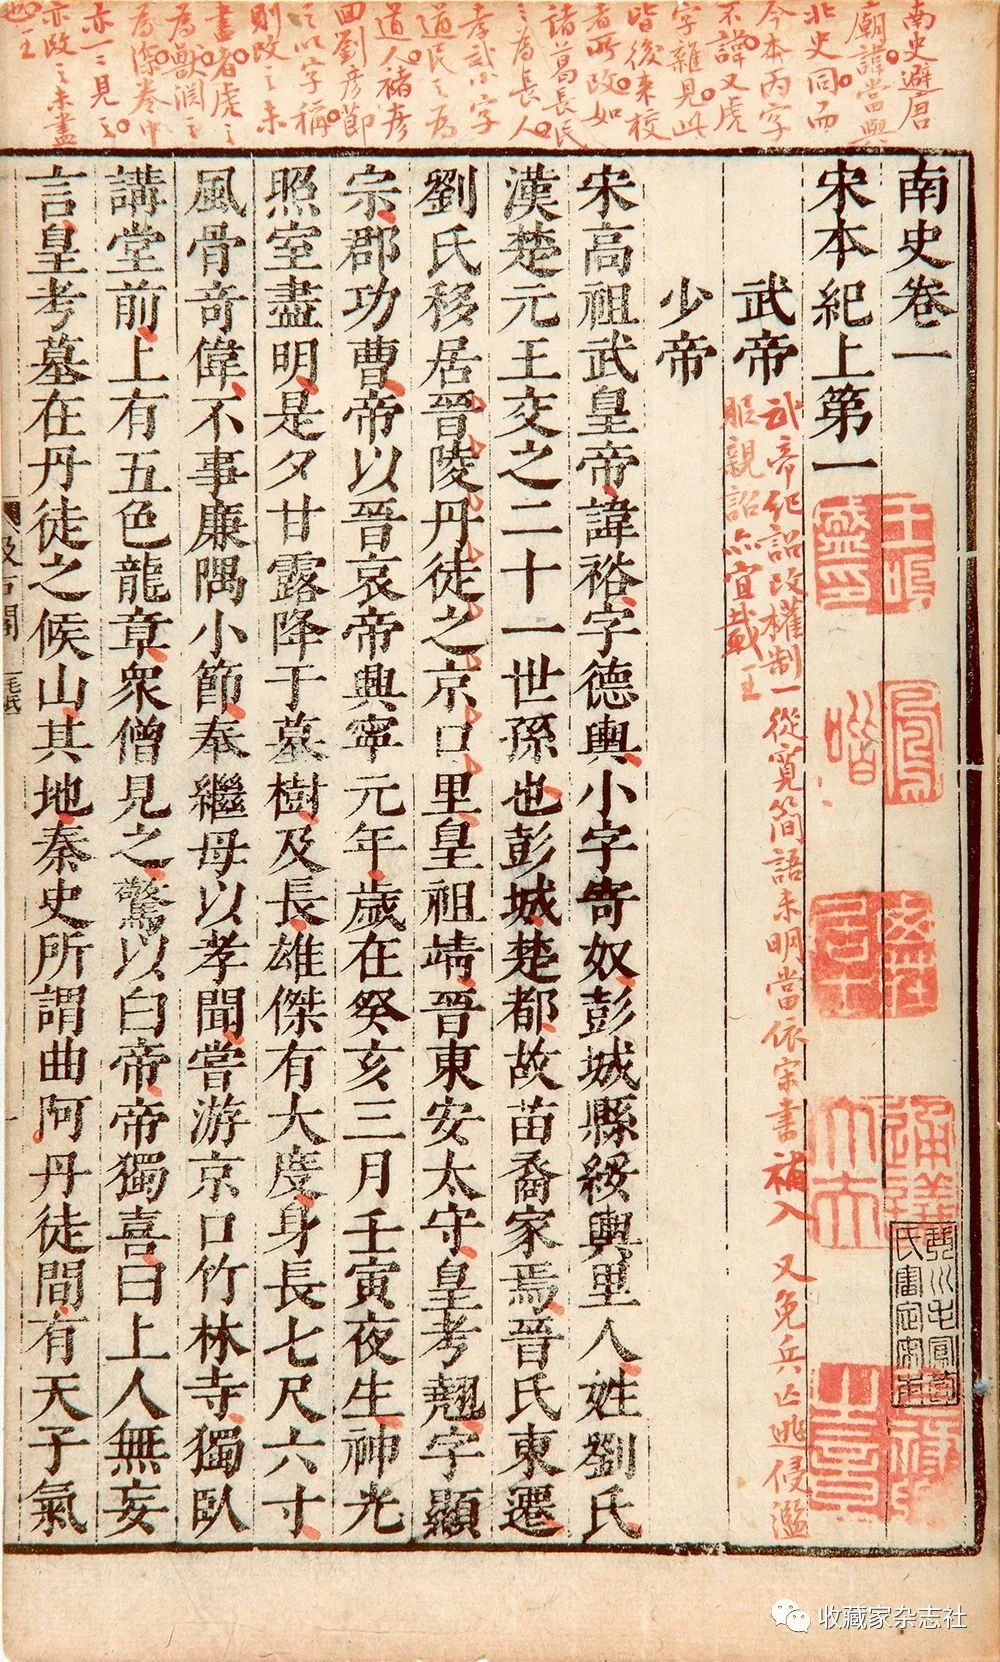 南史避唐
廟諱當與
北史同而
今本丙字
不諱又虎
字雜見此
皆後來校
者所改如
諸葛長民
之為長人
孝武小字
道民之為
道人褚彥
回劉彥節
之以字稱
則改之未
盡者虎之
為獸淵之
為深卷中
亦一二見之
亦改之未盡
也王
南史卷一
宋本紀上第一
武帝
武帝紀詔改權制一從寬簡語未明當依宋書補入 又免兵亡逃侵濫
服親詔亦宜載王
少帝
宋高祖武皇帝諱裕字德輿小字寄奴彭城縣綏輿里人姓劉氏
漢楚元王交之二十一世孫也彭城楚都故苗裔家焉晉氏東遷
劉氏移居晉陵丹徒之京口里皇祖靖晉東安太守皇考翹字顯
宗郡功曹帝以晉哀帝興寧元年歲在癸亥三月壬寅夜生神光
照室盡明是夕甘露降于墓樹及長雄傑有大度身長七尺六寸
風骨奇偉不事廉隅小節奉繼母以孝聞嘗游京口竹林寺獨臥
講堂前上有五色龍章衆僧見之驚以白帝帝獨喜曰上人無妄
言皇考墓在丹徒之候山其地秦史所謂曲阿丹徒間有天子氣
收藏家杂志社